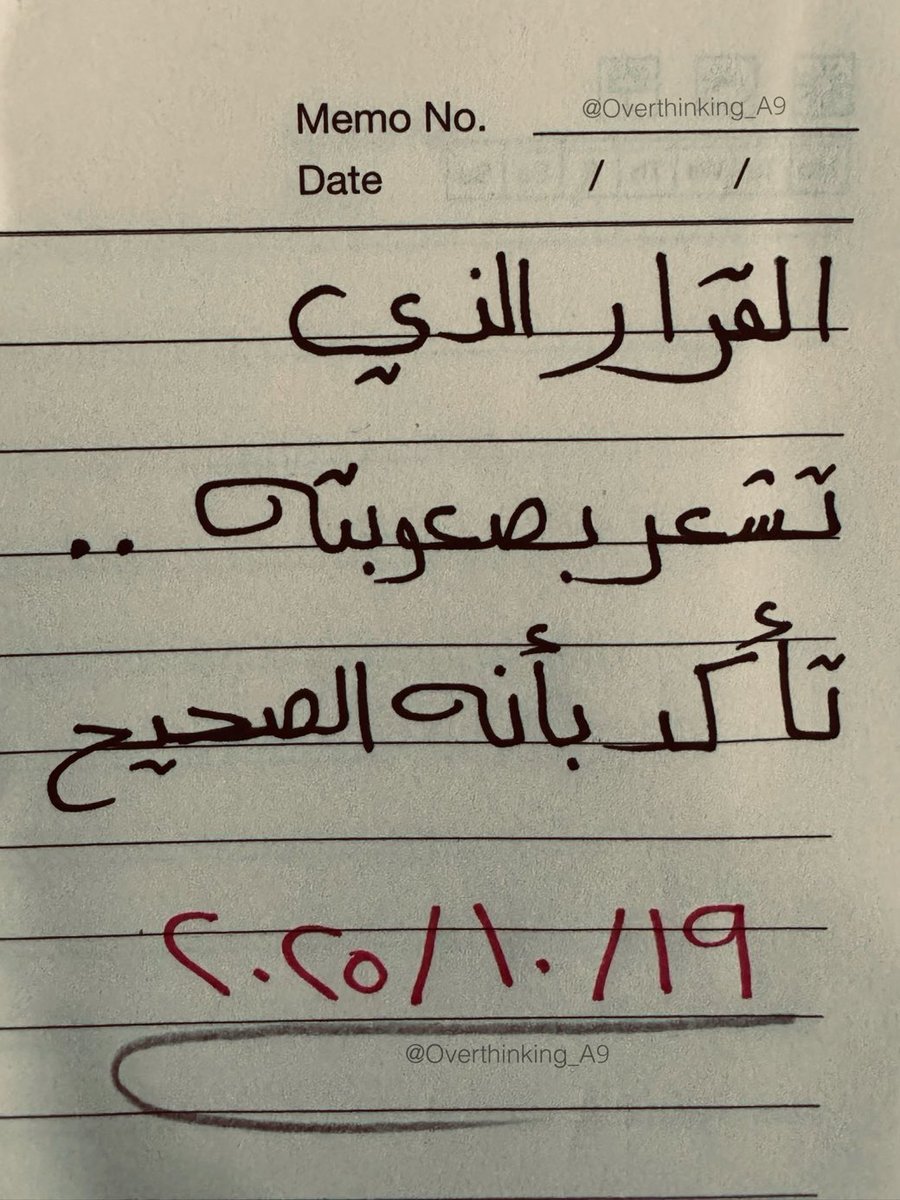 Memo No. @Overthinking_A9
Date / /
القرار الذي
تشعر بصعوبته ..
تأكد بأنه الصحيح
٢٠٢٥/١٠/١٩
@Overthinking_A9